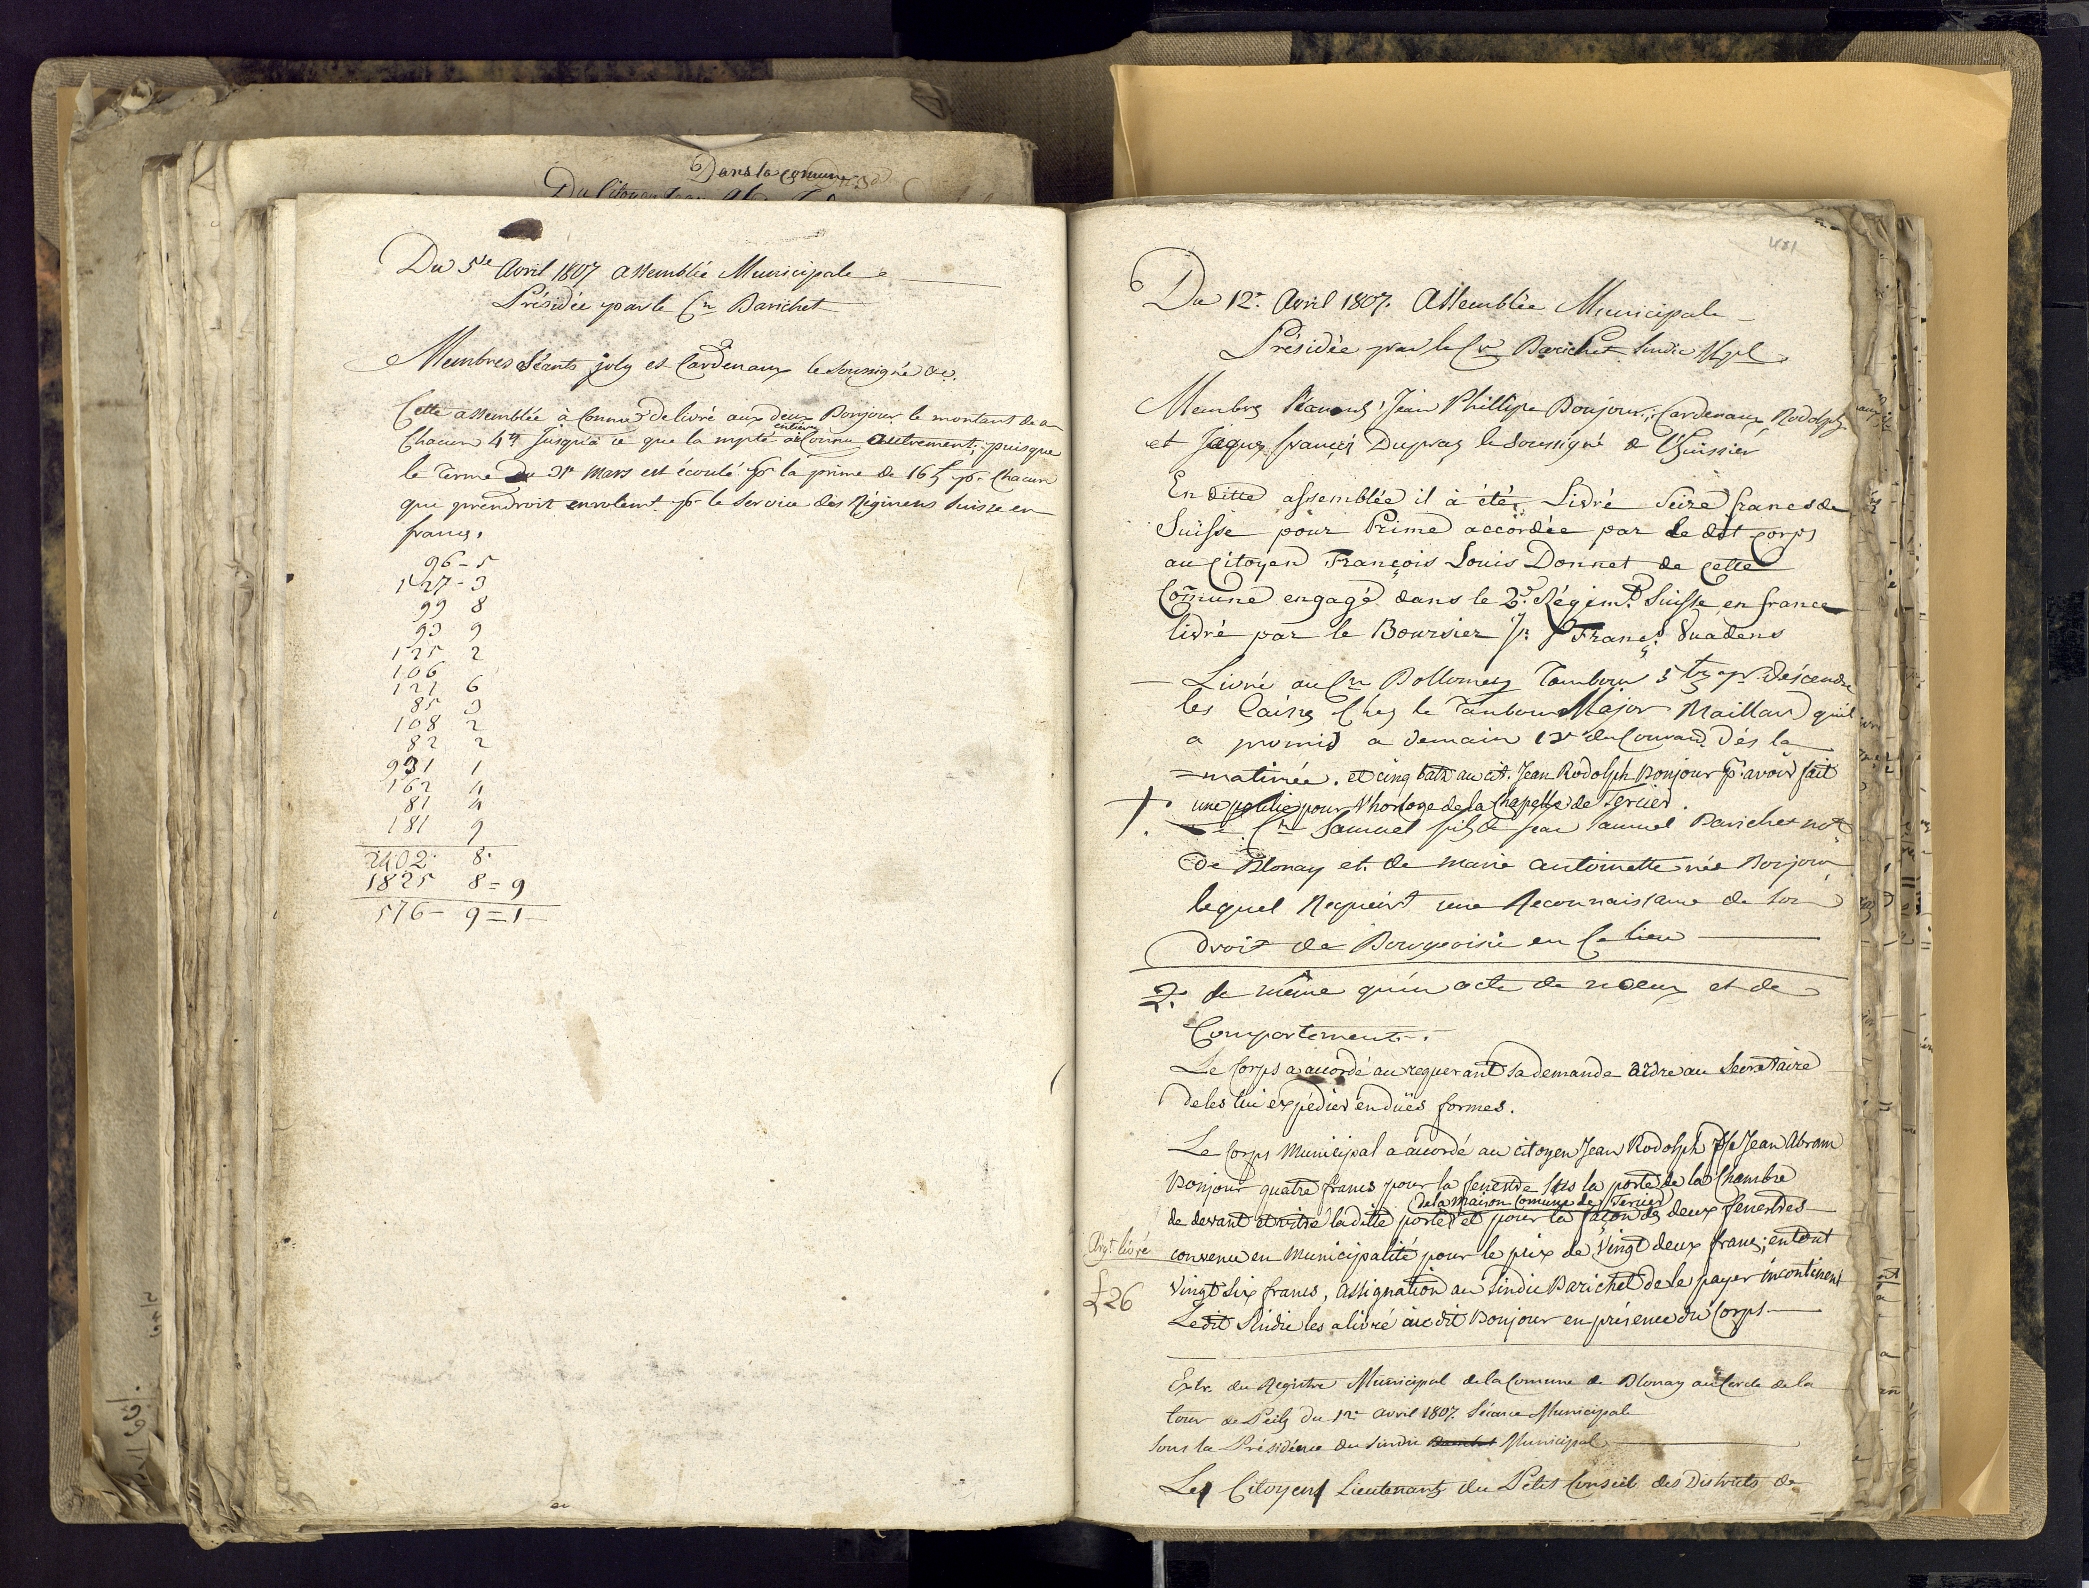 Dans la comune
Du Citoyen Jean
Du 5e Avril 1807 assemblée Municipale
Présidée par le Cn Barichet
Membres Séants joly et Cardenaux le soussigné &c.
Cette assemblée à Connu de livré aux deux Bonjour le montant de
Chacun jusqu'a ce que la mpté entiere à Connu autrement; puisque
le Terme du 31e Mars est écoulé pr la prime de 16 pr Chacun
qui prendroit enrolemt pr le Service des Régimens Suisse en
france.
96 - 5
127 - 3
99 8
93 9
125 2
106
121 6
85 3
108 2
82 2
931 1
162 4
81 4
181 9
2402. 8.
1825 8 = 9
576 - 9 = 1
481
Du 12e. Avril 1807. Assemblée Municipale
Présidée par le Cn Barichet Sindic Mpl
Membres Séants, Jean Phillipe Bonjour, Cardenaux, Rodolph
et Jaques françois Dupraz le Soussigné & l'huissier
En ditte assemblée il à été, Livré Seize francs de
Suisse pour Prime accordée par le dit corps
au Citoyen François Louis Donnet de cette
Comune engagé dans le 2d. Régimt. Suisse en france
livré par le Boursier Jn Franç. Vuadens
Livré au Cn Dollomey Tambour 5 btz pr déscendre
les Caises Chez le Tambour Major Maillard quil
a promis a demain 13e du Courand. Dés la
= matinée. et cinq batz au cit. Jean Rodolph Bonjour pr. avoir fait
une pour l'horloge de la Chapelle de Tercier.
1. Cn Samuel fils de Jean Samuel Barichet
de Blonay et de marie antoinette née Bonjour
lequel Requiert une Reconnaissance de son
droit de Bourgeoisie en Ce lieu
2. de même qu'un acte de moeurs et de
Comportement.
Le Corps a acordé au requerant sa demande ordre au Secretaire
de les lui expédier en dües formes.
Le Corps Municipal a acordé au citoyen Jean Rodolph ffe Jean Abram
Bonjour quatre francs pour la fenetre sus la porte de la Chambre
de la maison Comune de Tercier
de devant et vitré ladite porte et pour la façon des deux fenestres
convenu en Municipalité pour le prix de Vingt deux francs; en tout
Argt livré
£ 26
Vingt Six francs, assignation au Sindic Barichet de le payer incontinent
Ledit Sindic les a livré au dit Bonjour en présence du Corps
Extr. du Registre Municipal de la Comune de Blonay au Cercle de la
tour de Peilz du 12e avril 1807. Séance Municipale
sous la Présidence du Sindic Municipal
Les Citoyens Lieutenants du Petit Conseil des Districts de